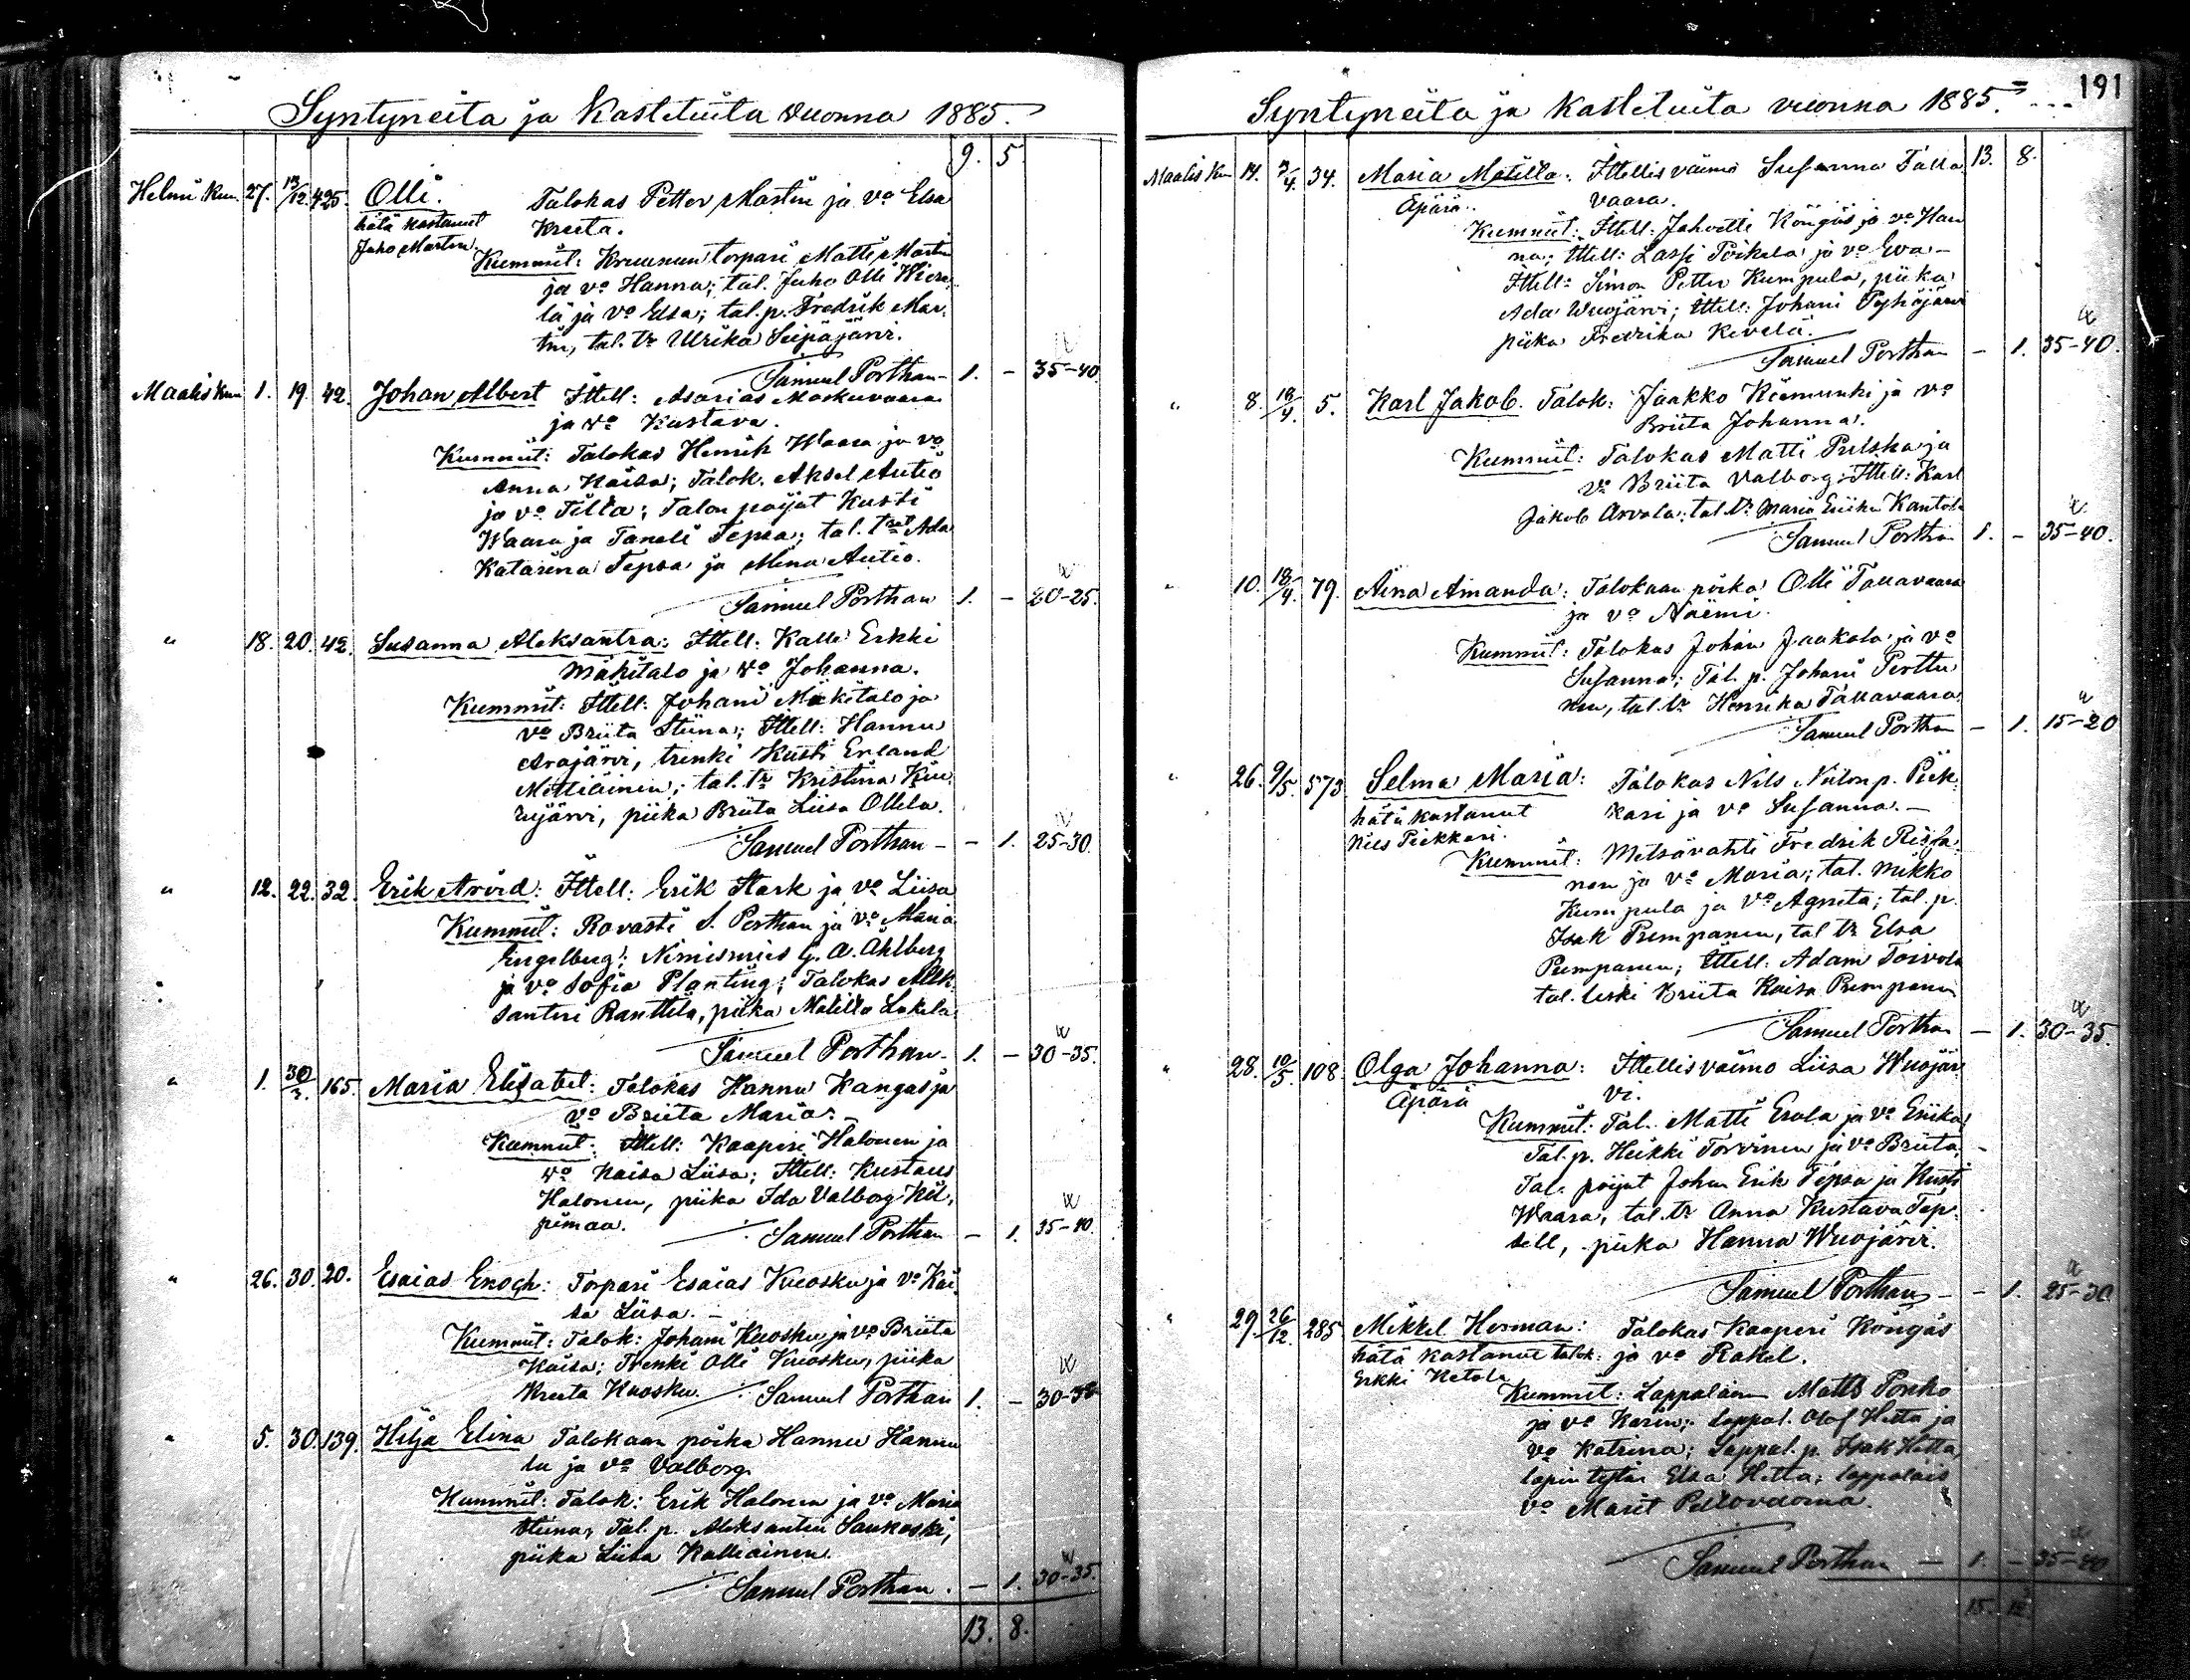 Syntyneitä ja Kastetuita vuonna 1885.
9. 5
Helmi kuu 27. 13/12. 425. Olli. Talokas Petter Martin ja vo Elsa
hätä kastanut Kreeta.
Juho Martin.
Kummit: Kruunun torpari Matti Martin
ja vo Hanna; tal. Juho Olli Hieta
lä ja vo Elsa; tal. p. Fredrik Mar
tin, tal. tr Ulrika Seipäjärvi.
Samuel Porthan 1. - 35-40.
Maalis kuu 1. 19. 42. Johan Albert Ittell: Asarias Moskuvaara
ja vo Kustava.
Kummit: Talokas Henrik Waara ja vo
Anna Kaisa; Talok. Aksel Autio
ja vo Tilta; Talon pojat Kusti
Waara ja Taneli Tepsa; tal. tret Ada
Katarina Tepsa ja Mina Autio.
Samuel Porthan 1. - 20-25.
" 18. 20. 42. Susanna Aleksantra: Ittell: Kalle Erkki
Mäkitalo ja vo Johanna.
Kummit: Ittell: Johani Mäkitalo ja
vo Briita Stiina; Ittell: Hannu
Arajärvi, trenki Kusti Erland
Mettiäinen; tal. tr Kristina Kuu
rujärvi, piika Briita Liisa Ollila.
Samuel Porthan - - 1. 25-30.
" 12. 22. 32. Erik Arvid: Ittell: Erik Stark ja vo Liisa
Kummit: Rovasti S. Porthan ja vo Maria
Engelberg; Nimismies G. A. Ahlberg
ja vo Sofia Planting; Talokas Alek
santeri Ranttila, piika Matilda Lakela.
Samuel Porthan. 1. - 30-35.
" 1. 30/3. 165. Maria Elisabet: Talokas Hannu Kangas ja
vo Briita Maria. -
Kummit: Ittell: Kaaperi Halonen ja
vo Kaisa Liisa; Ittell: Kustaus
Halonen, piika Ida Valborg Kil
pimaa.
Samuel Porthan - 1. 35-40.
" 26. 30. 20. Esaias Enoch: Torpari Esaias Kuosku ja vo Kai
sa Liisa. -
Kummit: Talok: Johani Kuosku ja vo Briita
Kaisa; Trenki Olli Kuosku, piika
Kreeta Kuosku. Samuel Porthan 1. - 30-35
" 5. 30. 139. Hilja Elina Talokaan poika Hannu Hannu
la ja vo Valborg.
Kummit: Talok: Erik Halonen ja vo Maria
Stiina, Tal. p. Aleksanteri Saukoski,
piika Liisa Kalliainen.
Samuel Porthan. - 1. 30-35.
13. 8.
191
Syntyneitä ja kastetuita vuonna 1885.
13. 8.
Maalis kuu 14. 3/4. 34. Maria Matilda: Ittellis vaimo Susanna Talla
Äpärä. vaara.
Kummit: Ittell: Jahvetti Köngäs ja vo Han
na; Ittell: Lassi Poikela ja vo Eva -
Ittell: Simon Petter Kumpula, piika
Ada Wuojärvi; Ittell: Johani Pyhäjärvi
piika Fredrika Kerelä.
Samuel Porthan - 1. 35-40.
" 8. 18/4. 5. Karl Jakob. Talok: Jaakko Riimunki ja vo
Briita Johanna.
Kummit: Talokas Matti Pulska ja
vo Briita Valborg; Ittell: Karl
Jakob Arvola; tal. tr Maria Eriika Kantola
Samuel Porthan 1. - 35-40.
" 10. 18/4. 79. Aina Amanda: Talokaan poika Olli Tallavaara
ja vo Naemi.
Kummit: Talokas Johan Jaakola ja vo
Susanna; Tal. p. Johani Perttu
nen, tal. tr Henrika Tallavaara.
Samuel Porthan - 1. 15-20
" 26. 9/5. 573 Selma Maria: Talokas Nils Niilon p. Piek
hätä kastanut kari ja vo Susanna. -
Nils Piekkari.
Kummit: Metsävahti Fredrik Rissa
nen ja vo Maria; tal. Mikko
Kumpula ja vo Agneta; tal. p.
Isak Pumpanen, tal tr Elsa
Pumpanen; Ittell: Adam Toivola
tal. leski Briita Kaisa Pumpanen
Samuel Porthan - 1. 30-35.
" 28. 10/5. 108. Olga Johanna: Ittellis vaimo Liisa Wuojär
Äpärä vi.
Kummit: Tal. Matti Erola ja vo Eriika
Tal. p. Heikki Torvinen ja vo Briita,
Tal. pojat Johan Erik Tepsa ja Kusti
Waara, tal. tr Anna Kustava Tep
sell, piika Hanna Wuojärvi.
Samuel Porthan - - 1. 25-30
" 29. 26/12. 285 Mikkel Herman: Talokas Kaaperi Köngäs
hätä kastanut talok: ja vo Rakel.
Erkki Ketola
Kummit: Lappalainen Matts Ponko
ja vo Karin; lappal. Olof Hetta ja
vo Katrina; Lappal. p. Isak Hetta,
lapin tytär Elsa Hetta; lappalais
vo Marit Peltovuoma.
Samuel Porthan - 1. - 35-40
15. 12